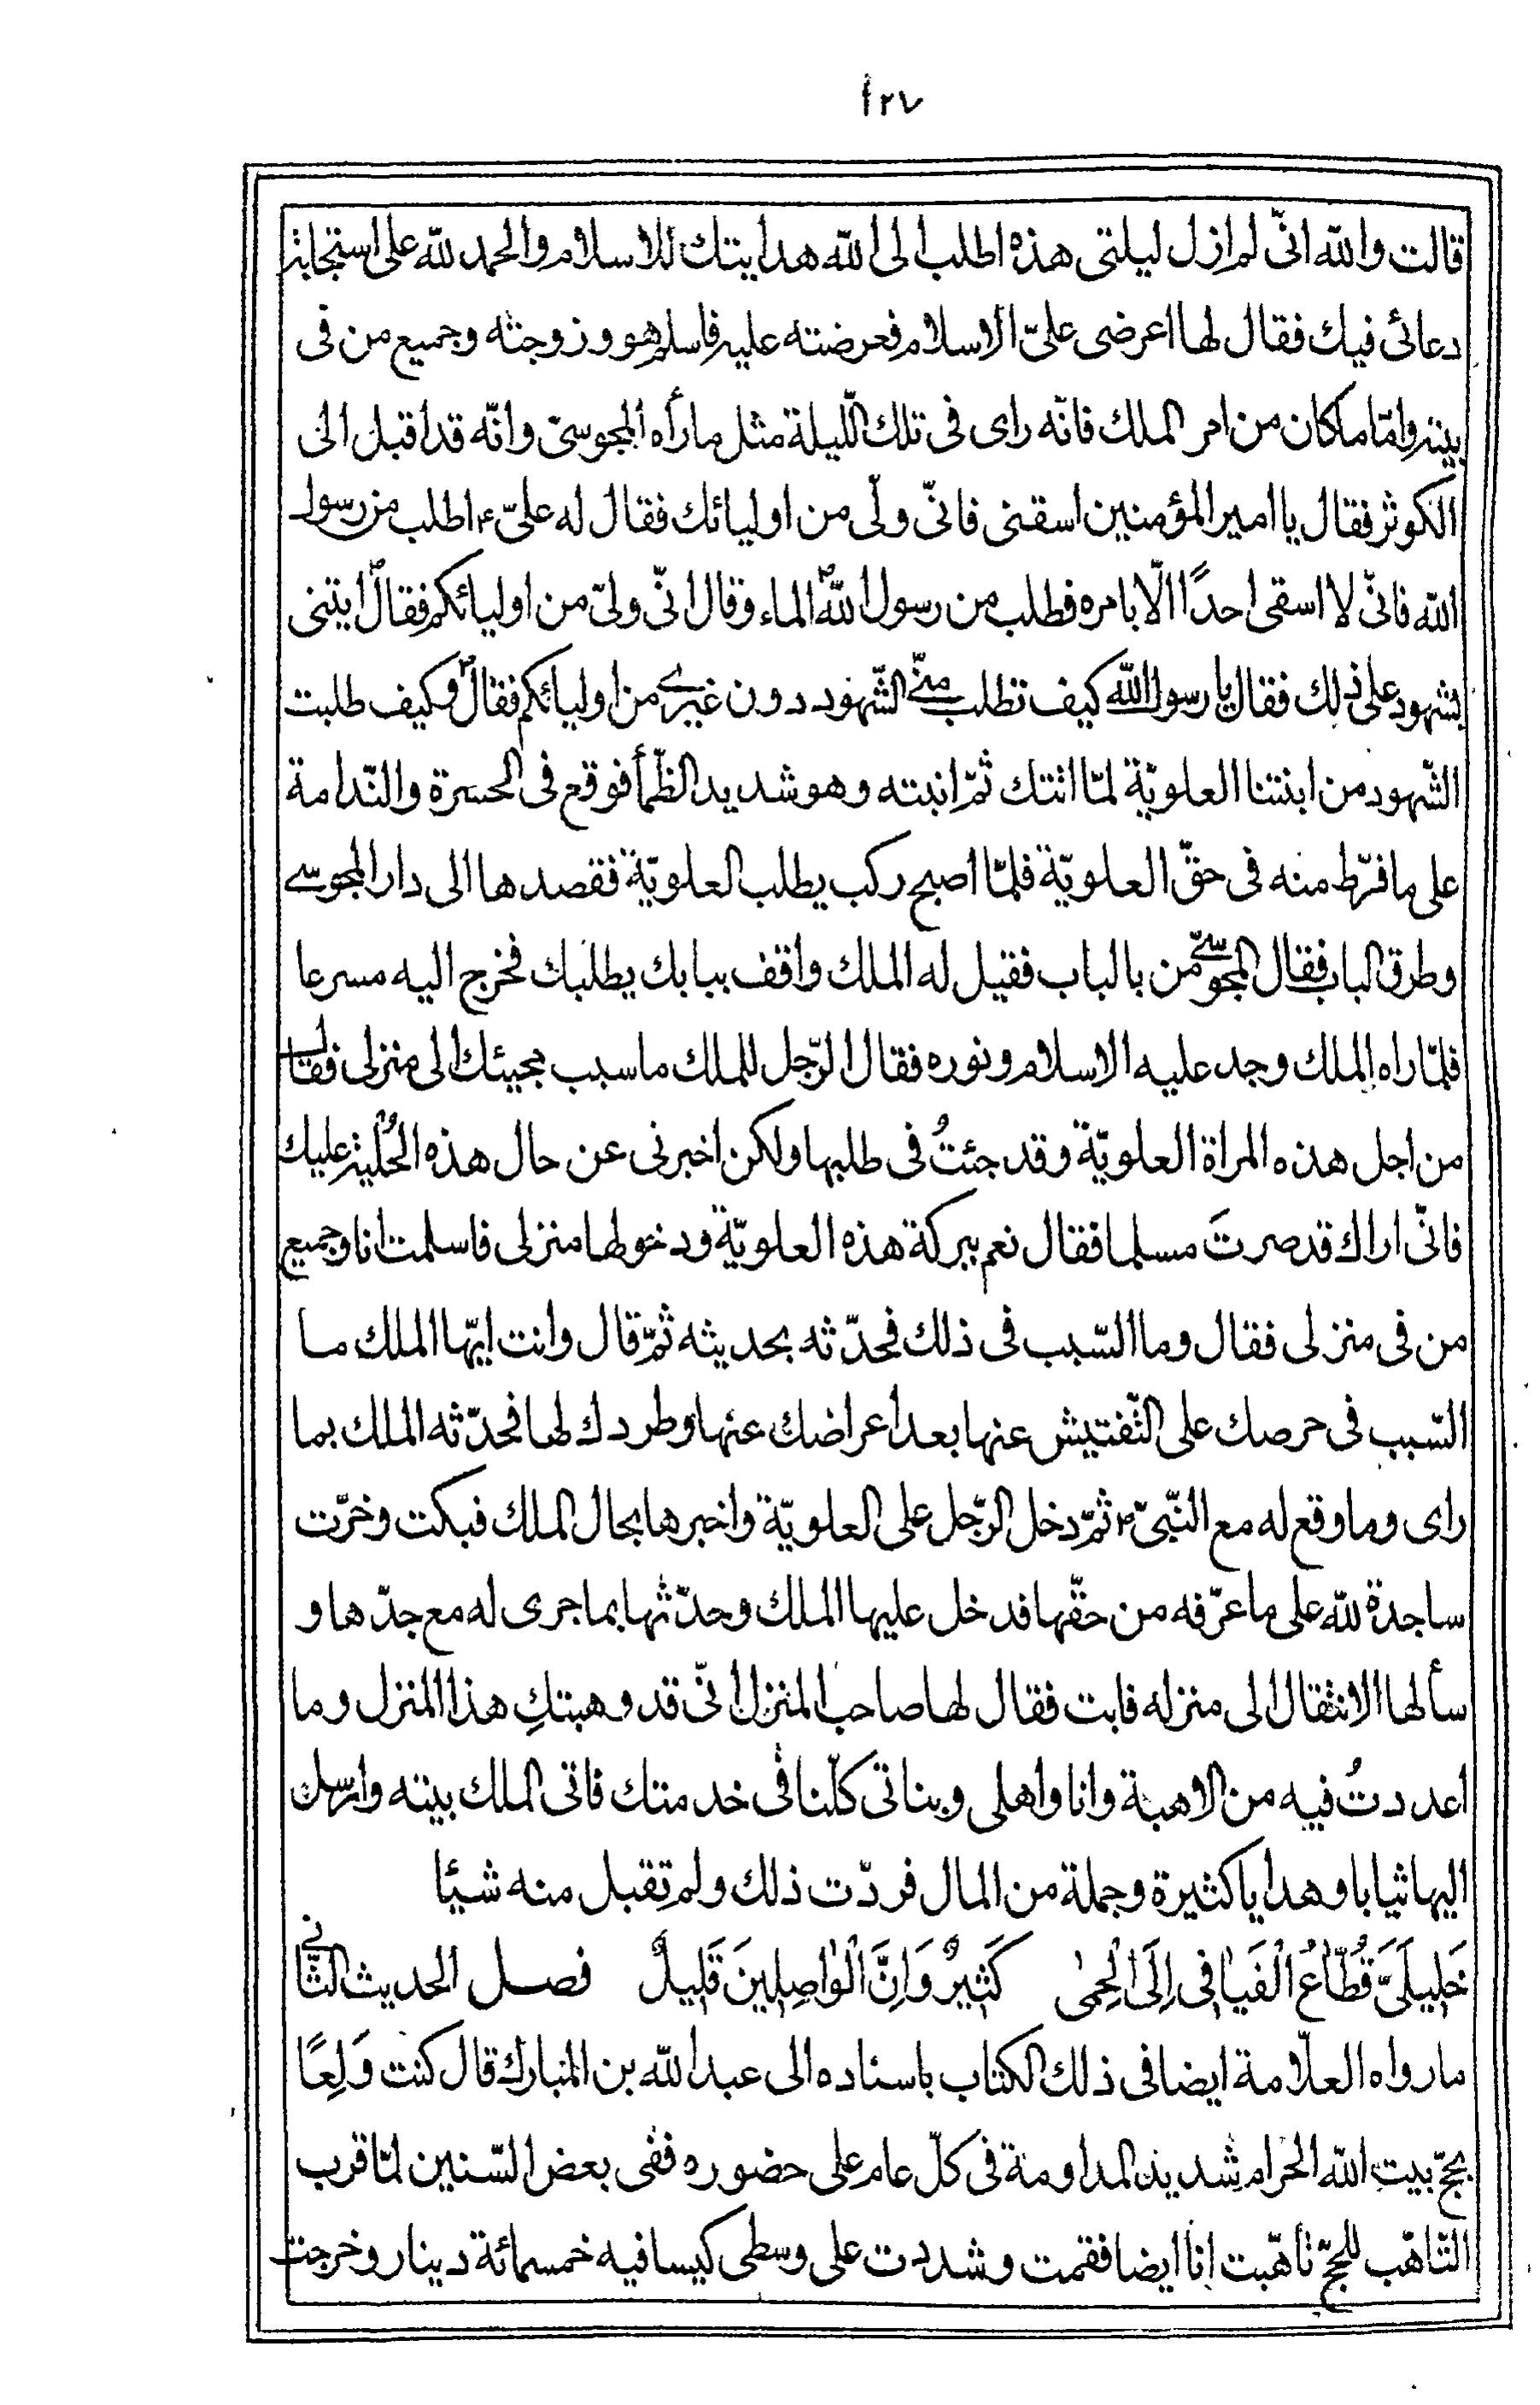 أ٢٧
قالت والله انّى لم ازل ليلتى هذه اطلب الى الله هدايتك للاسلام والحمد لله على استجابة
دعائى فيك فقال لها اعرضى علىّ الاسلام فعرضته عليه فاسلم هو و زوجته وجميع من فى
بيته وامّا ما كان من امر الملك فانّه راى فى تلك اللّيلة مثل ما رأه المجوسىّ وانّه قد اقبل الى
الكوثر فقال يا امير المؤمنين اسقنى فانّى ولّى من اوليائك فقال له علىّ ع اطلب من رسول
الله فانّى لا اسقى احدًا الّا بامره فطلب من رسول اللهۖ الماء وقال انّى ولىّ من اوليائكم فقالۖ ايتنى
بشهود على ذلك فقال يا رسول الله كيف تطلب منّى الشّهود دون غيرى من اوليائكم فقالۖ وكيف طلبت
الشّهود من ابنتنا العلويّة لمّا اتتك ثمّ انبته وهو شديد الظّمأ فوقع فى الحسرة والنّدامة
على ما فرّط منه فى حقّ العلويّة فلمّا اصبح ركب يطلب العلويّة فقصدها الى دار المجوسّى
وطرق الباب فقال المجوسّى من بالباب فقيل له الملك واقف ببابك يطلبك فخرج اليه مسرعا
فلمّا راه الملك وجد عليه الاسلام ونوره فقال الرّجل للملك ما سبب مجيئك الى منزلى فقال
من اجل هذه المراة العلويّة وقد جئتُ فى طلبها ولكن اخبرنى عن حال هذه الحُلية عليك
فانّى اراك قد صرتَ مسلما فقال نعم ببركة هذه العلويّة ودخولها منزلى فاسلمت انا وجميع
من فى منزلى فقال وما السّبب فى ذلك فحدّثه بحديثه ثمّ قال وانت ايّها الملك ما
السّبب فى حرصك على التّفتيش عنها بعد اعراضك عنها وطردك لها فحدّثه الملك بما
راى وما وقع له مع النّبىّ ص ثمّ دخل الرّجل على العلويّة واخبرها بحال الملك فبكت وخرّت
ساجدة لله على ما عرّفه من حقّها فدخل عليها الملك وحدّثها بما جرى له مع جدّها و
سألها الانتقال الى منزله فابت فقال لها صاحب المنزل انّى قد وهبتكِ هذا المنزل وما
اعددتُ فيه من الاهبة وانا واهلى وبناتى كلّنا فى خدمتك فاتى الملك بيته وارسل
اليها ثيابا وهدايا كثيرة وجملة من المال فردّت ذلك ولم تقبل منه شيئا
خَلِيلَىَّ قُطّاعُ الْفَيَافِى اِلَى الْحِمٰى كَثِيرٌ وَاِنَّ الْوٰاصِلِينَ قَلِيلٌ فصل الحديث الثّانى
ما رواه العلّامة ايضا فى ذلك الكتاب باسناده الى عبد الله بن المبارك قال كنت وَلِعًا
بحجّ بيت الله الحرام شديد المداومة فى كلّ عام على حضوره ففى بعض السّنين لمّا قرب
التّاهّب للحجّ تاهّبت انا ايضا فقمت وشددت على وسطى كيسا فيه خمسمائة دينار وخرجت